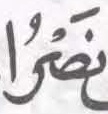 نَصْرًا